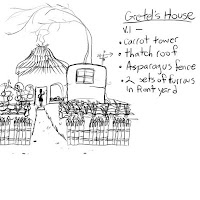 Gretel's House
V.1 —
• Carrot tower
• thatch roof
• Asparagus fence
• 2 sets of furrows
in front yard